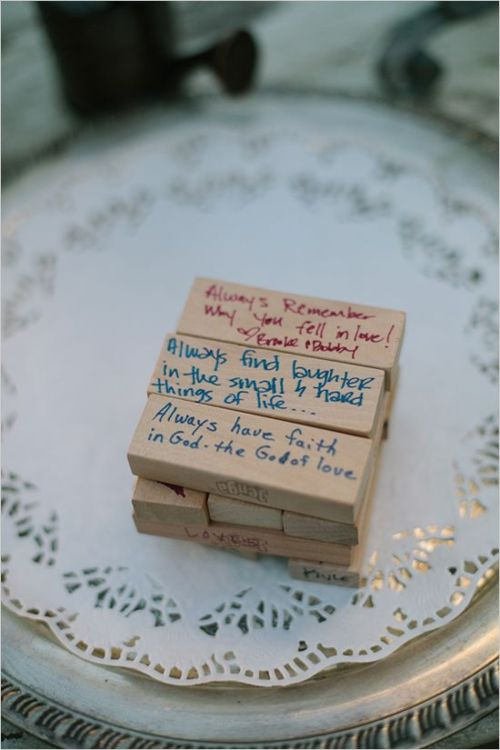 Always Remember
why you fell in love!
Brooke & Bobby
Always find laughter
in the small & hard
things of life...
Always have faith
in God - the God of love
Jenga
LOVE
Kylie